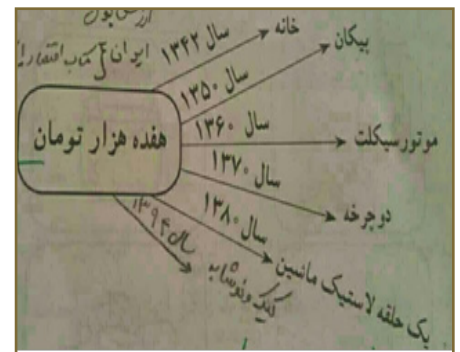 ارزش پول
ایران } کتاب اقتصاد
هفده هزار تومان
سال ۱۳۴۲ خانه
سال ۱۳۵۰ پیکان
سال ۱۳۶۰ موتورسیکلت
سال ۱۳۷۰ دوچرخه
سال ۱۳۸۰ یک حلقه لاستیک ماشین
سال ۱۳۹۴ کیک و نوشابه